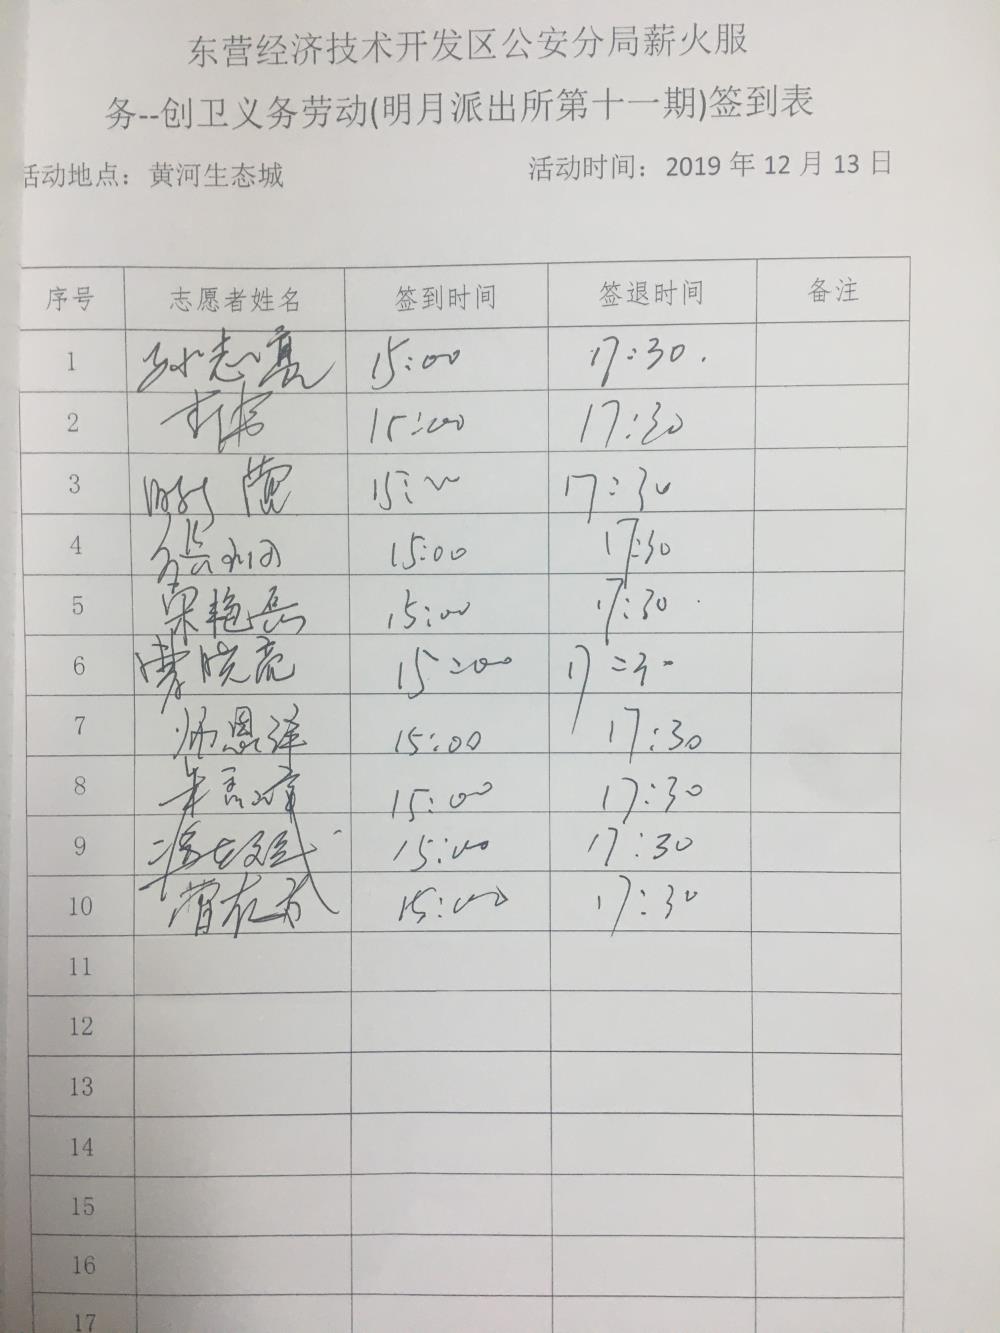 东营经济技术开发区公安分局薪火服
务--创卫义务劳动(明月派出所第十一期)签到表
活动地点：黄河生态城 活动时间：2019 年 12 月 13 日
序号 志愿者姓名 签到时间 签退时间 备注
1 孙志亮 15:00 17:30.
2 15:00 17:30
3 15:00 17:30
4 15:00 17:30
5 宋艳磊 15:00 17:30
6 曹晓亮 15:00 17:30
7 师恩洋 15:00 17:30
8 15:00 17:30
9 15:00 17:30
10 15:00 17:30
11
12
13
14
15
16
17